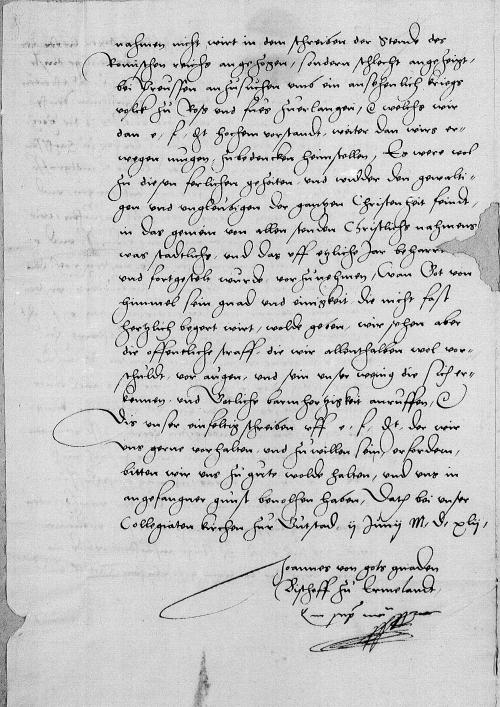 nahmen nicht wirt in dem schreiben der Stende des
Romischen reichs angezogen, sondern schlecht angezeigt,
bei Preussen anzusuchen umb ein ansehenlich kriegs
volck zu Ros und fues zuerlangen, Welchs wir
dan e. f. Dt hochem vorstandt, weiter dan wirs er-
wegen mugen, zubedencken heimstellen, Es were wol
zu diesen ferlichen gezeiten, und widder den gewalti-
gen und ungleubigen der gantzen Christenheit feindt,
in das gemein von allen stenden Christlichs nahmens
was stadtlichs, und das uff etzliche Jar beharret
und fortgestelt wurde, vorzunehmen, Wan Got von
himmel sein gnad und einigkeit die nicht fast
hertzlich begert wirt, wolde geben, wir sehen aber
die offentliche straff, die wir allenthalben wol vor-
schuldt, vor augen, und sein unser wenig die sich er-
kennen, und Gotliche barmhertzigkeit anruffen,
Dis unser einfeltig schreiben uff e. f. Dt, der wir
uns gerne vorhalten, und zuwillen sein, erfordern,
bitten wir uns zu gute wolde halten, und uns in
angefangner gunst bevolhen haben, Dath bei unser
Collegiaten kirchen zur Gutstad, ij Junij M. D. xlij,
Joannes von gots gnaden
Bischoff zu Ermelandt,